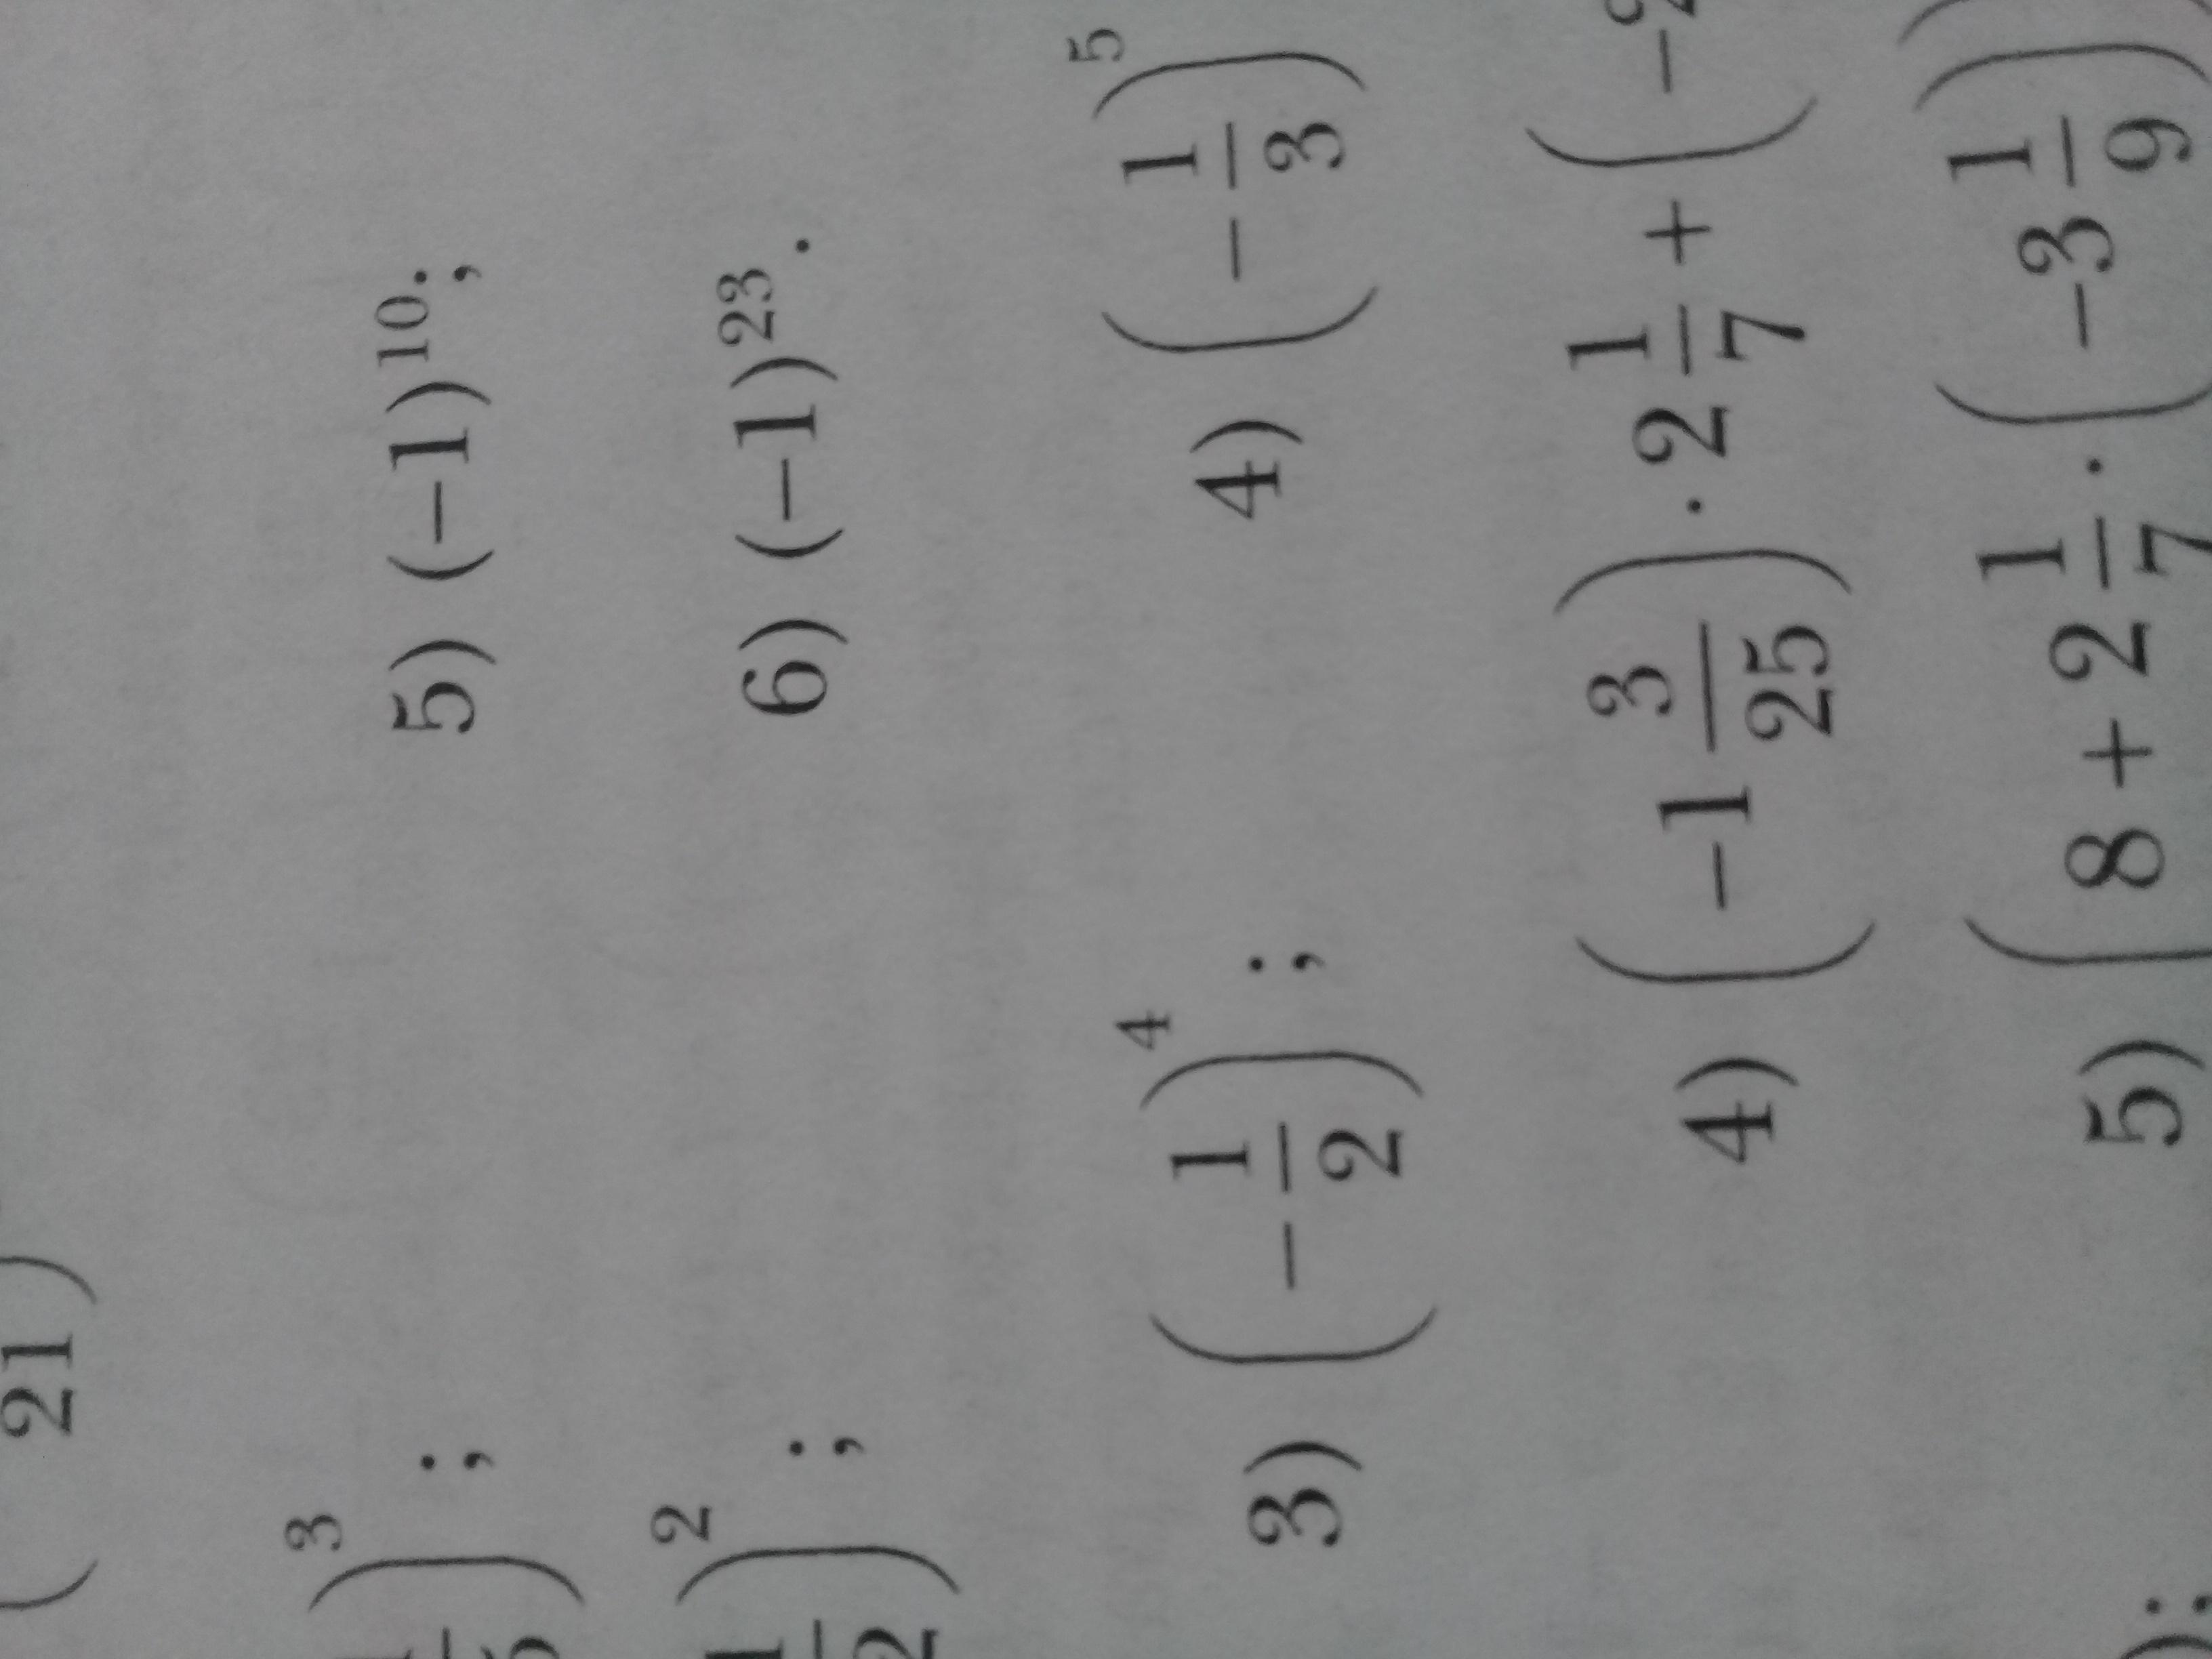 ( 21)
)³ ; 5) (−1)¹⁰;
)² ; 6) (−1)²³.
3) (−1/2)⁴ ; 4) (−1/3)⁵
4) (−1 3/25) · 2 1/7 + (−
5) (8 + 2 1/7 · (−3 1/9))